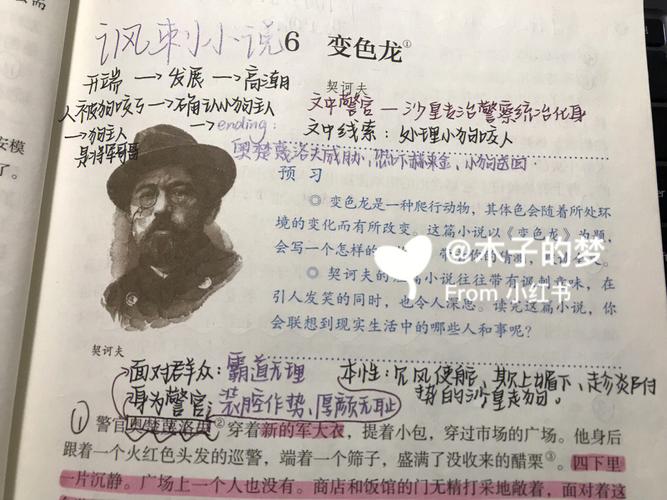 讽刺小小说 6 变色龙①
契诃夫
开端→发展→高潮
人被狗咬了→确认小狗主人
→狗主人
是将军哥哥
→ending:
文中警官—沙皇专治警察统治化身
文中线索:处理小狗咬人
奥楚蔑洛夫威胁、恐吓赫来金,小狗送回.
预 习
◎ 变色龙是一种爬行动物,其体色会随着所处环
境的变化而有所改变。这篇小说以《变色龙》为题,
会写一个怎样的
◎ 契诃夫的 小说往往带有讽刺意味,在
引人发笑的同时,也令人深思。读完这篇小说,你
会联想到现实生活中的哪些人和事呢?
@木子的梦
From 小红书
契诃夫
面对群众:霸道无理
身为警官:装腔作势、厚颜无耻
本性:见风使舵、欺上媚下、趋炎附
势的沙皇走狗。
① 警官奥楚蔑洛夫②穿着新的军大衣,提着小包,穿过市场的广场。他身后
跟着一个火红色头发的巡警,端着一个筛子,盛满了没收来的醋栗③。四下里
一片沉静。广场上一个人也没有。商店和饭馆的门无精打采地敞着,面对着这
安模
了。